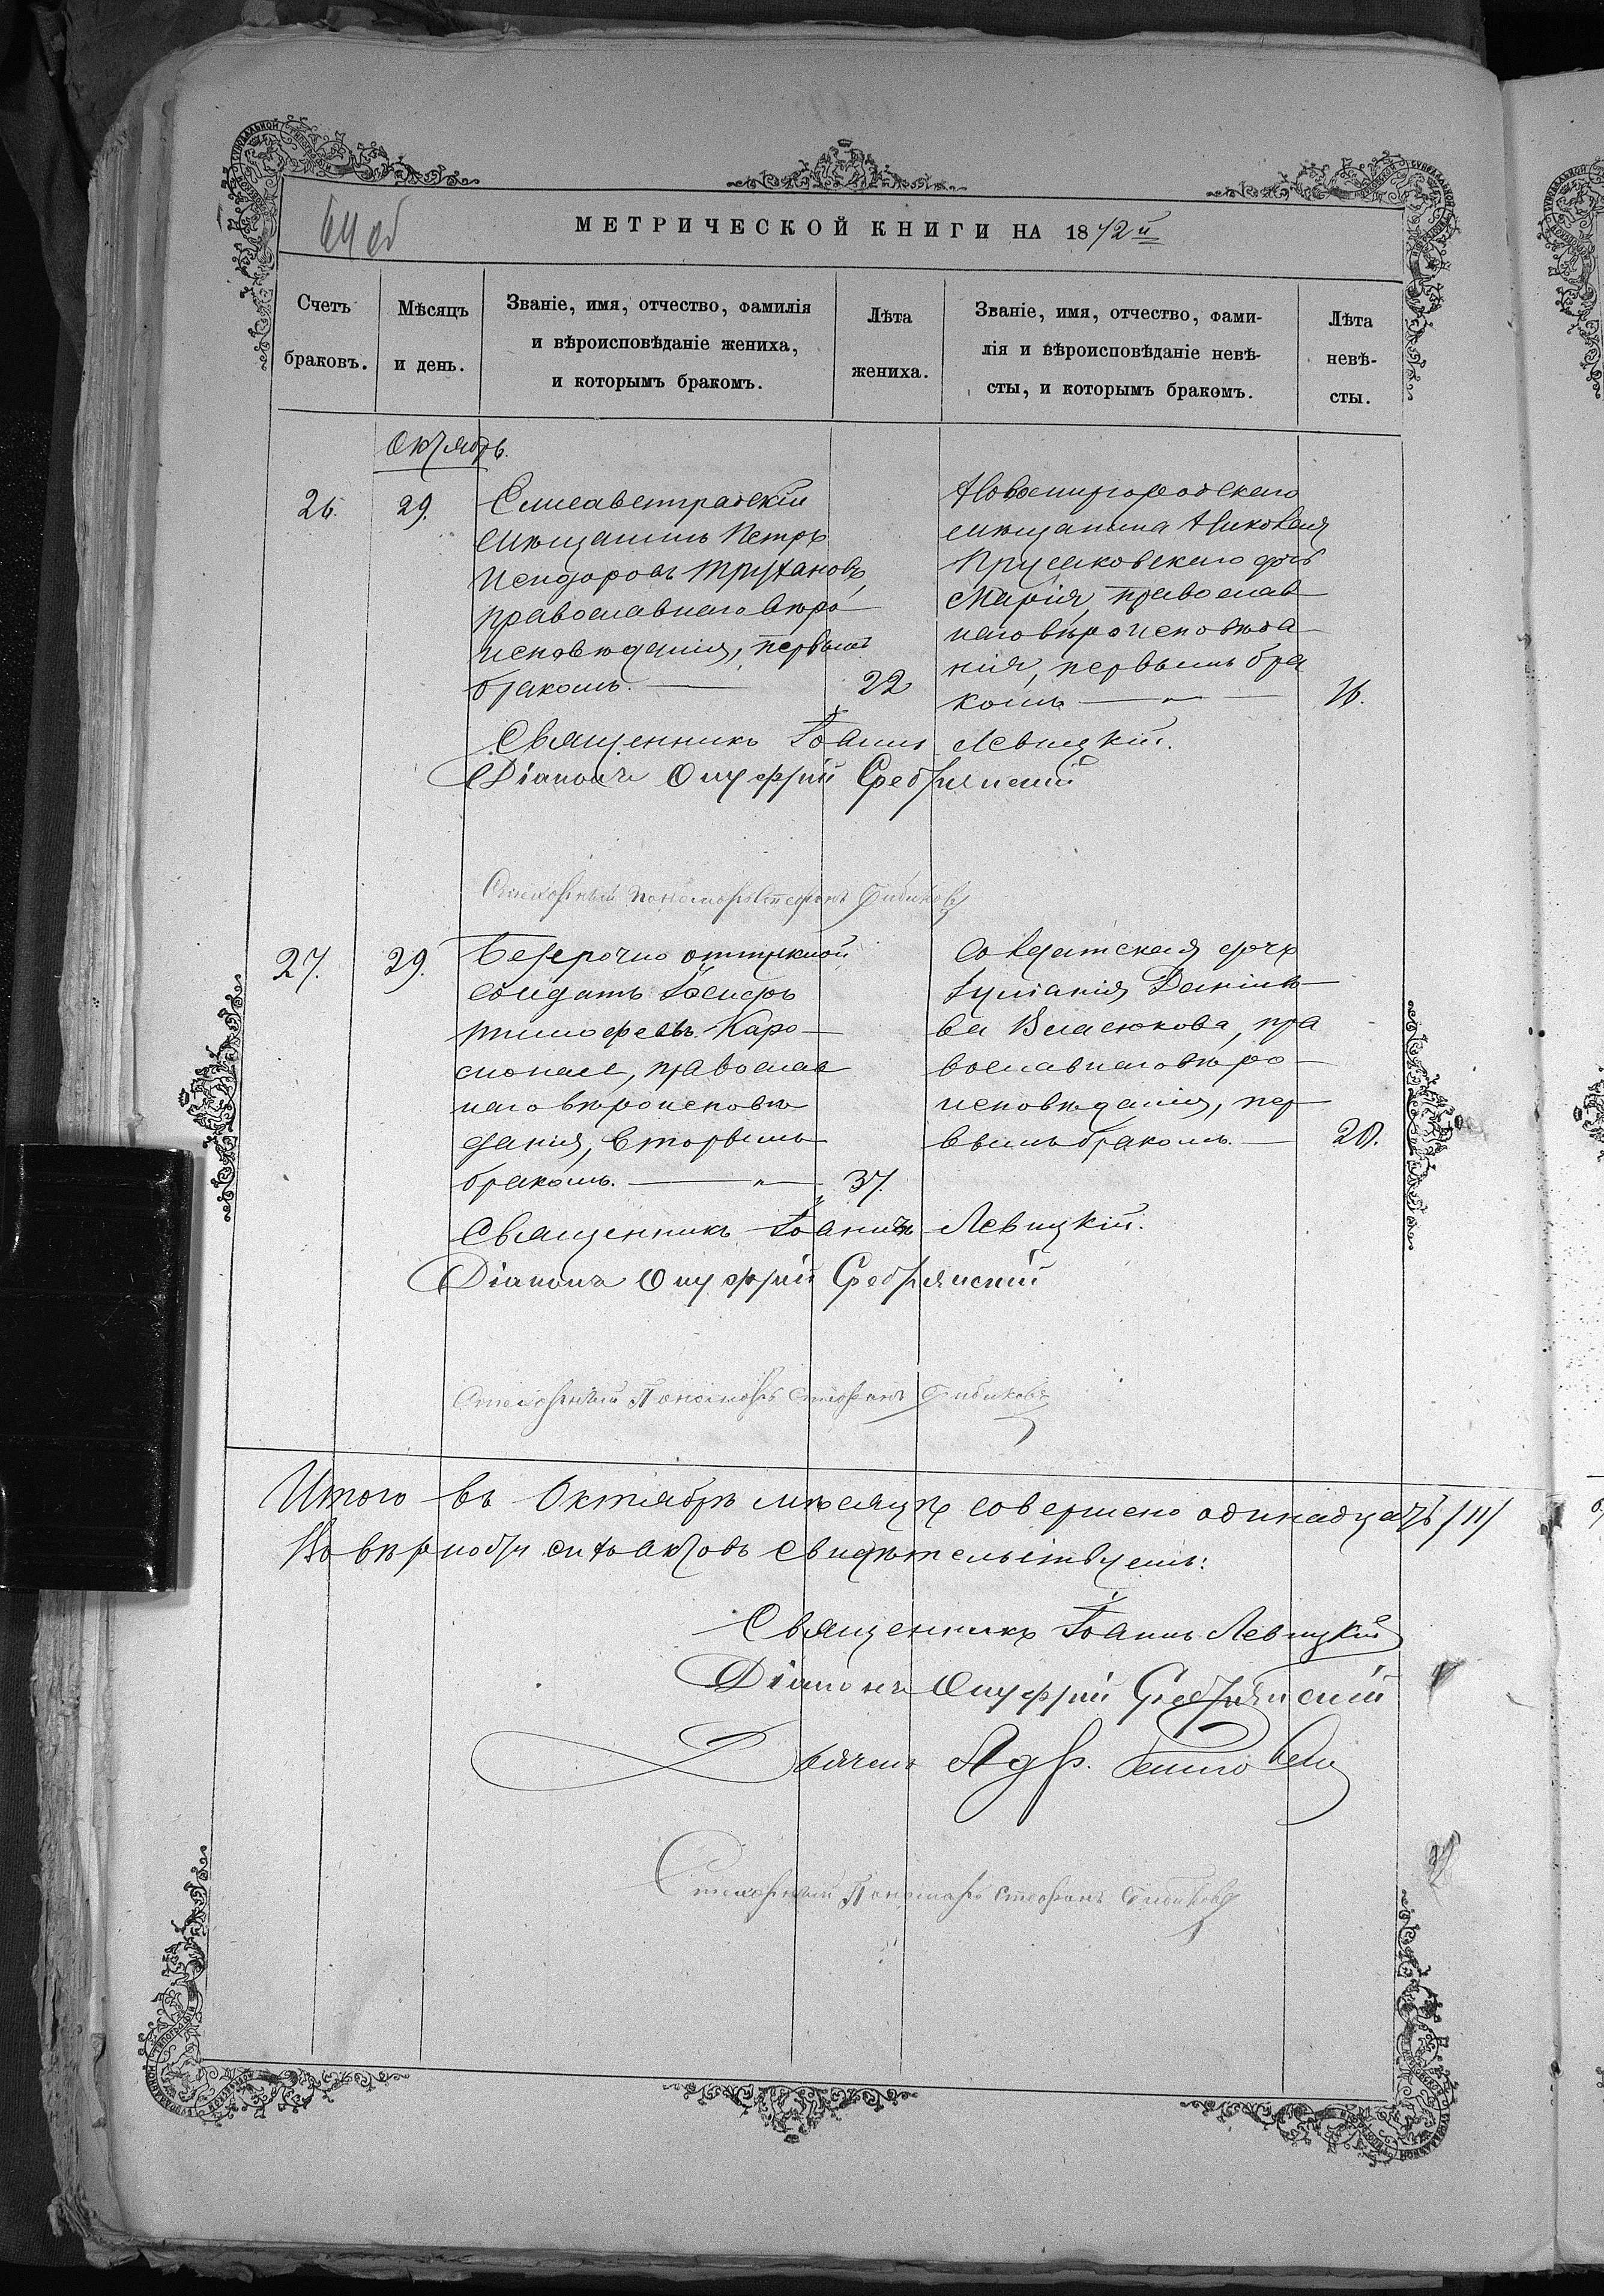 64 об
МЕТРИЧЕСКОЙ КНИГИ НА 1872й
Счетъ браковъ.
Мѣсяцъ и день.
Званіе, имя, отчество, фамилія
и вѣроисповѣданіе жениха,
и которымъ бракомъ.
Лѣта жениха.
Званіе, имя, отчество, фами-
лія и вѣроисповѣданіе невѣ-
сты, и которымъ бракомъ.
Лѣта невѣ-
сты.
Октябрь.
26. 29.
Елисаветградскій
мѣщанинъ Петръ
Исидоровъ Трухановъ,
православнаго вѣро
исповѣданія, первымъ
бракомъ. — 22
Новомиргородскаго
мѣщанина Николая
Прусаковскаго дочь
Марія, православ
наго вѣроисповѣда
нія, первымъ бра
комъ — " — 16.
Священникъ Іоаннъ Левицкій.
Діаконъ Онуфрій Сребрянскій
Пономарь Стефанъ Бибиковъ
27. 29.
Безсрочно отпускной
солдатъ Іосифъ
Тимофеевъ
православ
наго вѣроисповѣ
данія, вторымъ
бракомъ. — " — 37.
Солдатская дочь
Іуліанія Данило
ва Власюкова, пра
вославнаго вѣро
исповѣданія, пер
вымъ бракомъ. — 20.
Священникъ Іоаннъ Левицкій.
Діаконъ Онуфрій Сребрянскій
Пономарь Стефанъ Бибиковъ
Итого въ Октябрѣ мѣсяцѣ совершено одинадцать /11/
сихъ актовъ свидѣтельствуемъ:
Священникъ Іоаннъ Левицкій
Діаконъ Онуфрій Сребрянскій
Дьячекъ
Пономарь Стефанъ Бибиковъ